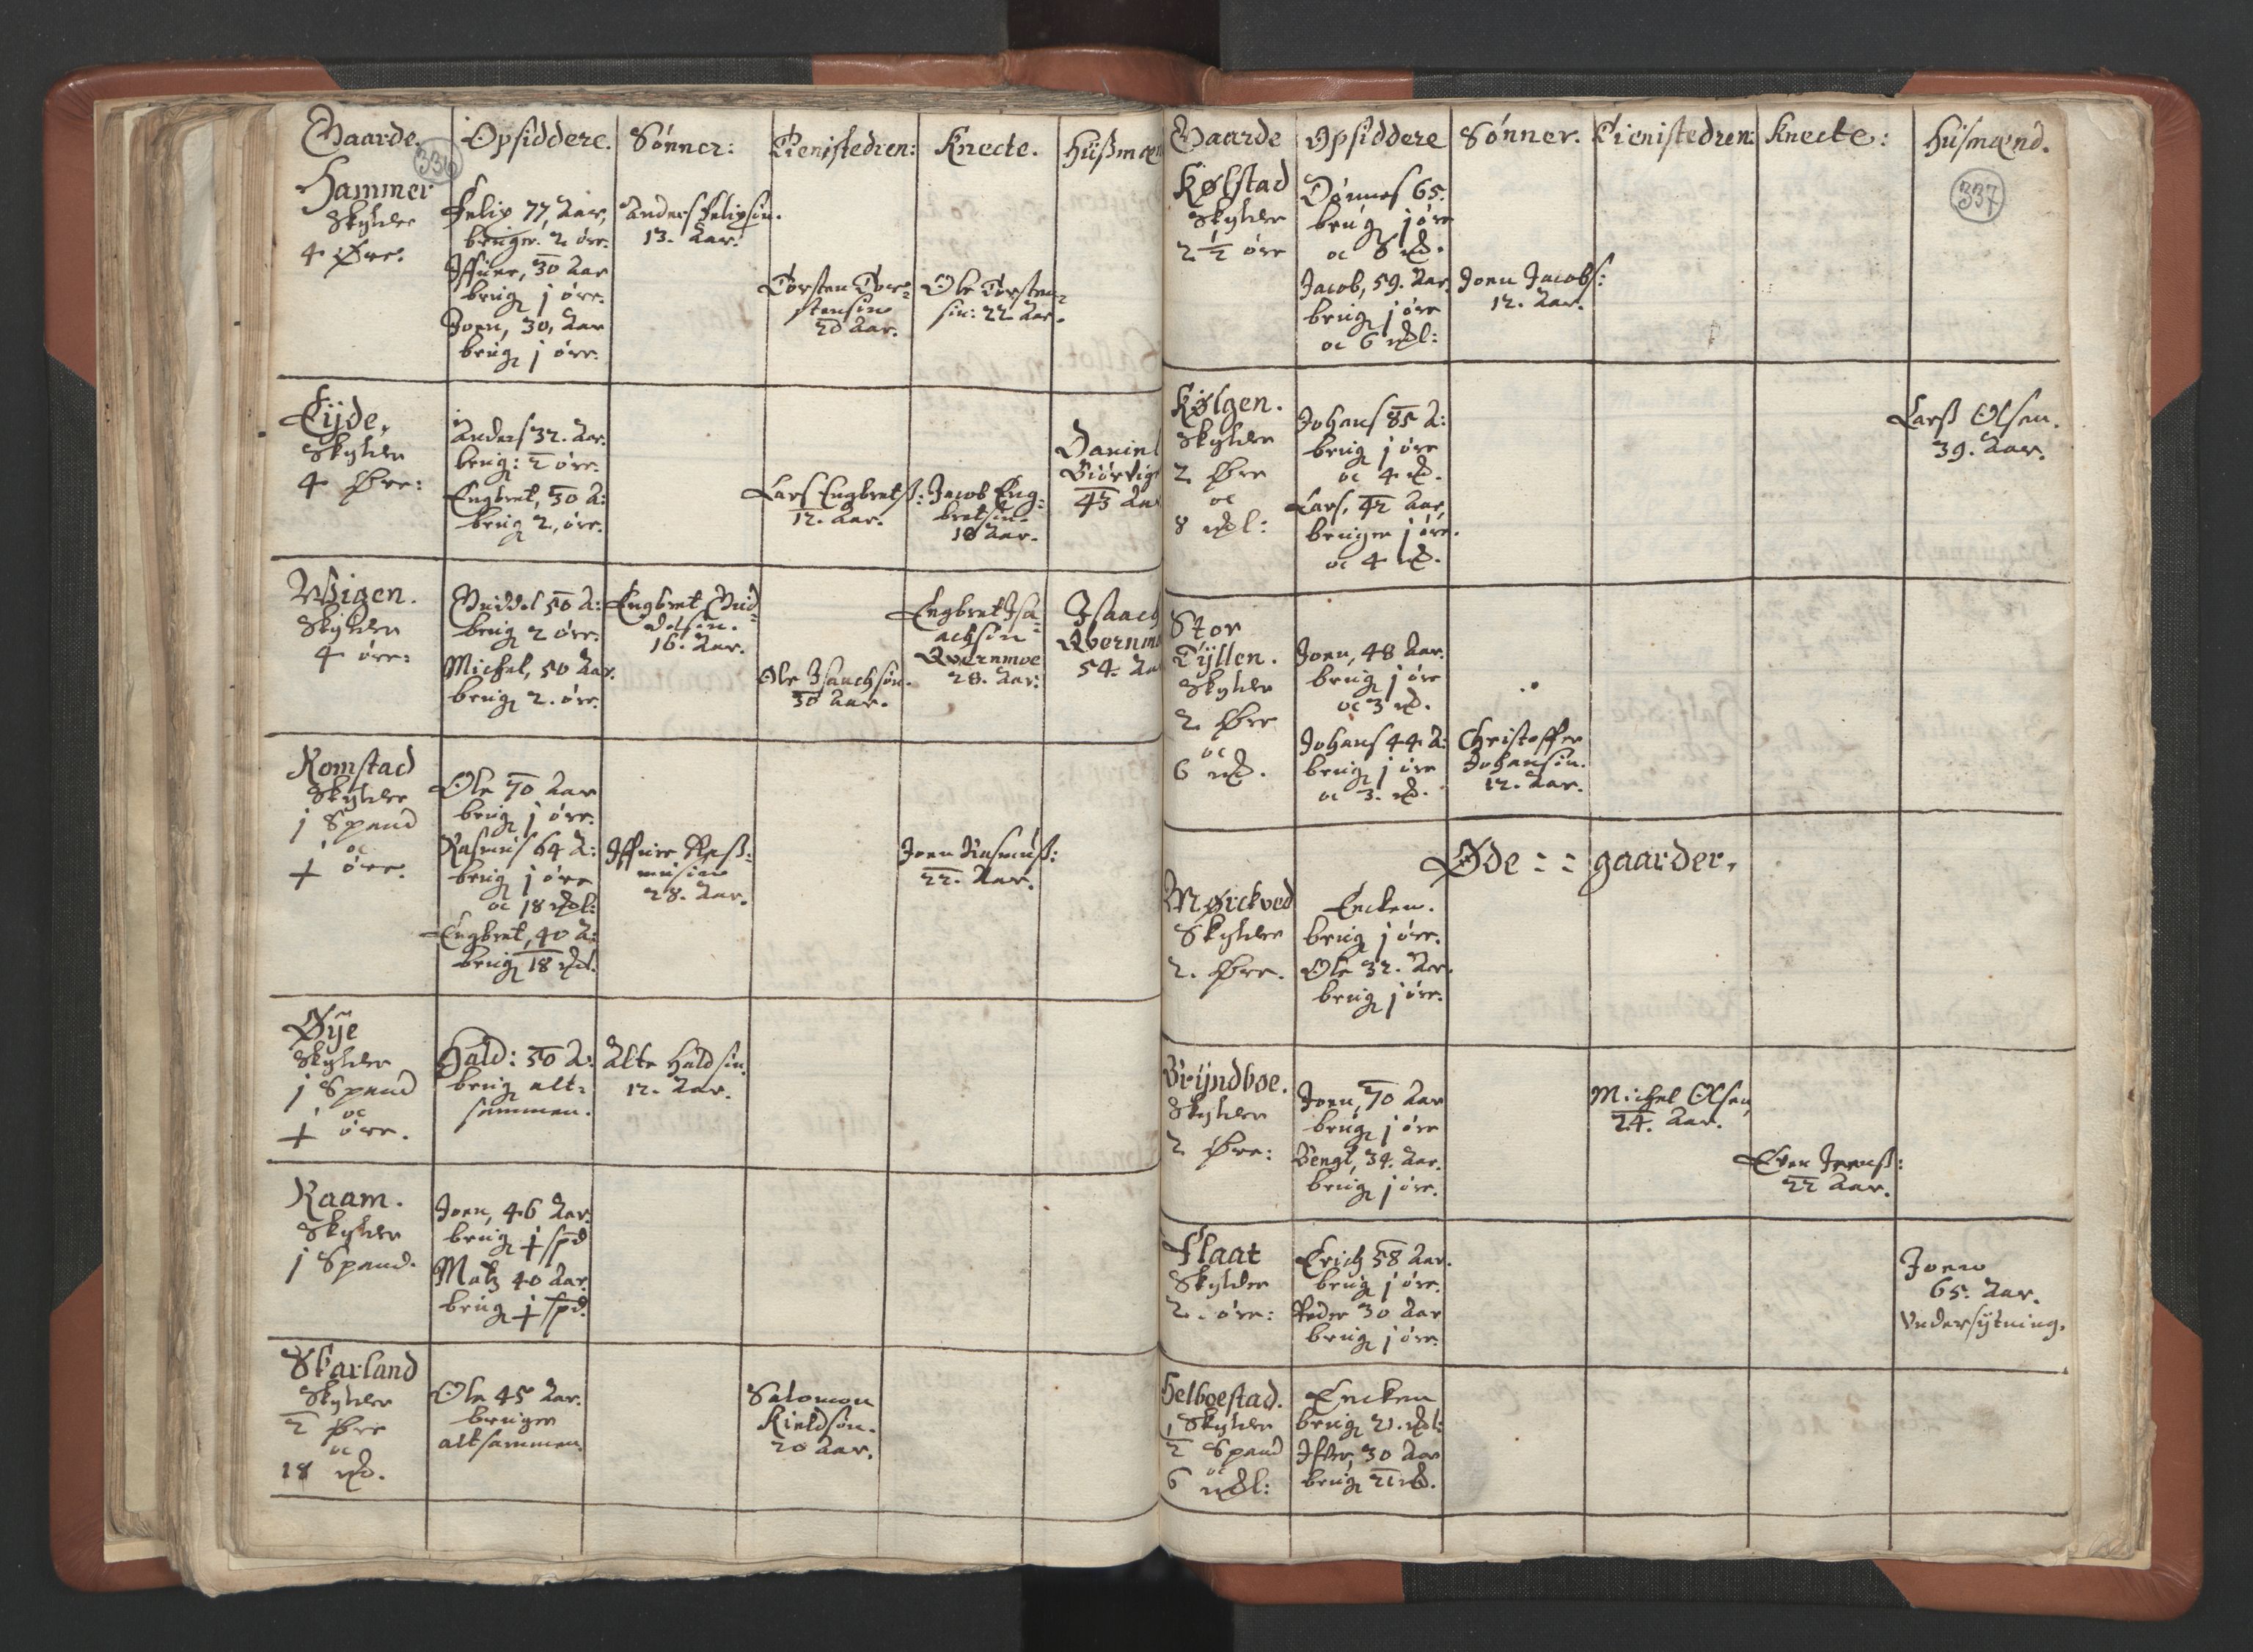 Gaarde. Opsiddere. Sønner: Tienistedren: Knecte. Hußmæn
336
Hammer
Skylder
4 Øre:
Felip 77, Aar,
bruger. 2 öre.
Iffuer, 30 Aar
brug j öre.
Joen, 30, Aar
brug j öre.
Anders Felipsøn.
13. Aar.
Torsten Tor=
stensøn
20 Aar.
Ole Torsten=
søn: 22 Aar.
Eijde,
Skylder
4 Øre:
Anders 32. Aar.
brug: 2 öre.
Engbret, 50 A:
brug 2, öre.
Lars Engbretß:
12. Aar.
Jacob Eng=
bretsøn.
18 Aar.
Daniel
Biörvig
45 Aar
Wigen.
Skylder
4 öre:
Guddol 50 A:
brug 2 öre.
Michel, 50 Aar.
brug 2. öre.
Engbret Gud=
dolsøn.
16. Aar.
Ole Isachsøn.
30 Aar.
Engbret Isa=
achsøn
Qvernmoe
28. Aar:
Isaach
Qvernmo
54. Aa
Romstad
Skylder
j Spand
oc
½ öre.
Ole 70 Aar
brug j öre.
Rasmus 64 A:
brug j öre
oc 18 ꝳl:
Engbret, 40 A:
brug 18 ꝳl.
Iffuer Raß=
musøn
28. Aar.
Joen Rasmusß:
22. Aar.
Øije
Skylder
j Spand
oc
½ öre.
Hald: 50 A:
brug alt=
sammen.
Alte Haldsøn.
12. Aar.
Raam.
Skylder
j Spand.
Joen, 46 Aar.
brug ½ spd
Matz 40 Aar
brug ½ spd.
Skarland
Skylder
2 Øre
oc
18 ꝳ.
Ole 45 Aar.
bruger
altsammen.
Salomon
Kieldsøn.
20 Aar.
Gaarde Opsiddere Sønner. Tienistedren: Knecte: Husmænd.
337
Kølstad
Skylder
2 ½ öre
Tönnes 65.
brug j öre
oc 6 ꝳ.
Jacob, 59. Aar.
brug j öre
oc 6 ꝳl:
Joen Jacobs:
12. Aar.
Kølgen.
Skylder
2 Øre
oc
8 ꝳl:
Johans 85 A:
brug j öre
oc 4 ꝳ.
Lars, 42 Aar,
bruger j öre.
oc 4 ꝳ.
Larß Olsen.
39. Aar.
Stor
Tÿllen.
Skylder
2 Øre
oc
6 ꝳ.
Joen, 48 Aar.
brug j öre
oc 3 ꝳ.
Johans 44 A:
brug j öre
oc 3. ꝳ.
Christoffer
Johansøn.
12. Aar.
Øde = = gaarder,
Mørckved
Skylder
2. Øre.
Encken.
brug j öre.
Ole 32. Aar.
brug j öre.
Brÿndboe.
Skylder
2 Øre:
Joen, 70 Aar
brug j öre
Bengt, 34. Aar.
brug j öre.
Michel Olsen
24. Aar.
Even Joenß:
22 Aar.
Flaat
Skylder
2. öre:
Erich 58 Aar.
brug j öre.
Peder 30 Aar
brug j öre.
Joen
65. Aar.
Undersijtning.
Helboestad.
Skylder
½ Spand
oc
6 ꝳl:
Encken
brug 21. ꝳl:
Ifver, 30 Aar
brug 21 ꝳ.